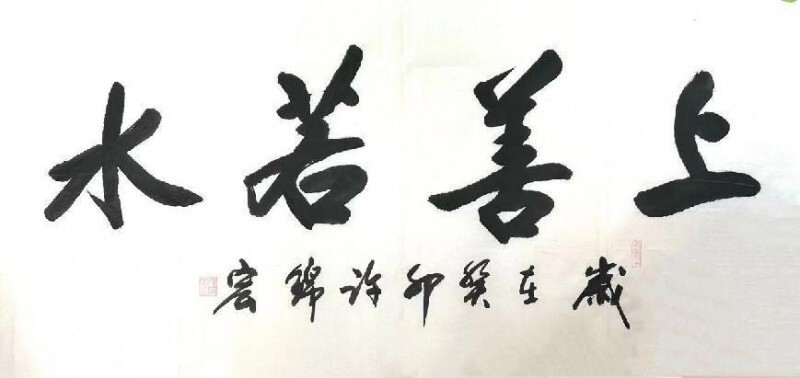 上善若水
歲在癸卯许錦宏